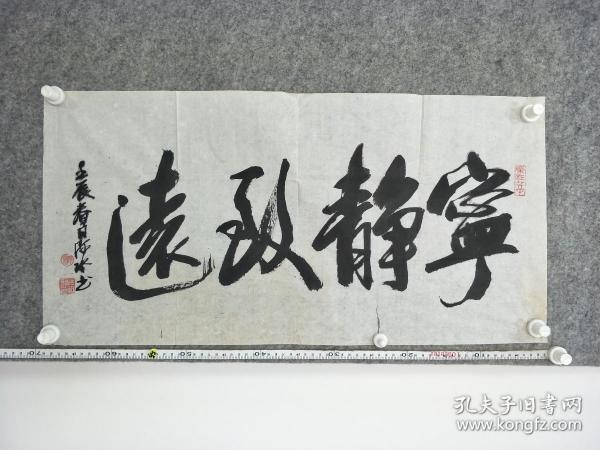 寧靜致遠
壬辰春日
书
孔夫子旧书网
www.kongfz.com